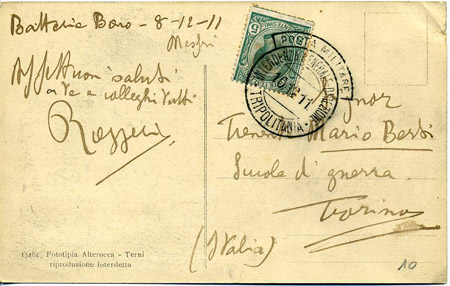 Batteria Boro - 8-12-11
Messri
Affettuosi saluti
a Te e colleghi tutti
POSTA MILITARE
INTENDENZA GENERALE
TRIPOLITANIA
11
5
Signor
Tenente Mario Berti
Scuola di guerra
Torino
(Italia)
15484 Fototipia Alterocca - Terni
riproduzione interdetta
10